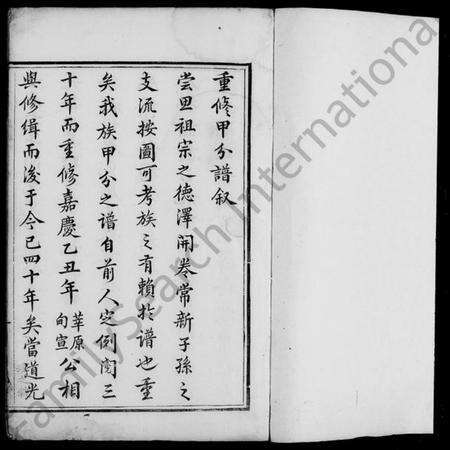 重修甲分譜叙
嘗思祖宗之德澤開卷常新子孫之
支流按圖可考族之有賴於譜也重
矣我族甲分之譜自前人定例閱三
十年而重修嘉慶乙丑年莘原旬宣公相
與修緝而後于今已四十年矣當道光
FamilySearch International